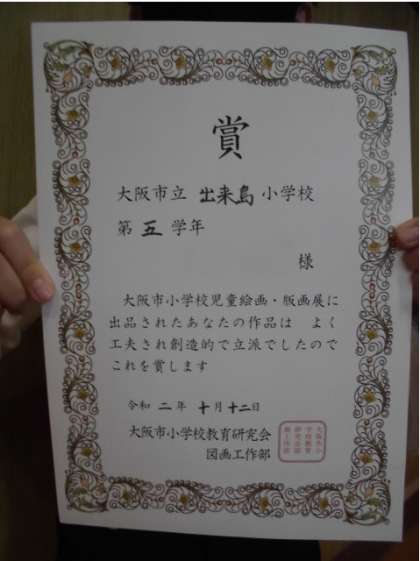 賞
大阪市立 出来島 小学校
第 五 学年
様
大阪市小学校児童絵画・版画展に
出品されたあなたの作品は よく
工夫され創造的で立派でしたので
これを賞します
令和 二 年 十 月 十二 日
大阪市小学校教育研究会
図画工作部